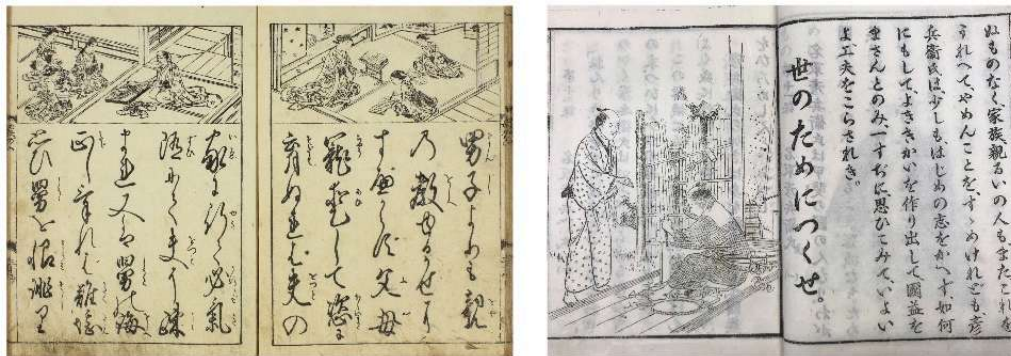 男子よりも親
乃教ゆるがせに
すべからず父母
寵愛して恣に
育ぬれば夫の
家に行て必氣
随にて夫に疎
まれ又は舅の誨
正ければ難堪
思ひ舅を恨誹り
ぬものなく、家族親るいの人も、また、これを
うれへて、やめんことを、すゝめけれども、彦
兵衛氏は、少しも、はじめの志をかへず、如何
にもして、よききかいを作り出して、國益を
生さんとのみ、一すぢに思ひてみて、いよい
よ工夫をこらされき。
世のためにつくせ。